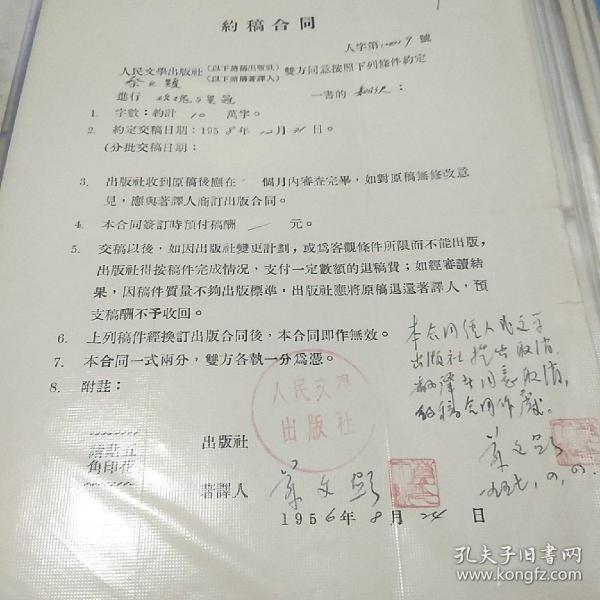 約稿合同
人字第 9 號
人民文學出版社(以下簡稱出版社)雙方同意按照下列條件約定
蔡文顯(以下簡稱著譯人)
進行 玫瑰與皇冠 一書的翻譯:
1. 字數:約計 10 萬字。
2. 約定交稿日期:1958年12月31日。
(分批交稿日期:
3. 出版社收到原稿後應在 個月內審查完畢,如對原稿無修改意
見,應與著譯人商訂出版合同。
4. 本合同簽訂時預付稿酬 元。
5. 交稿以後,如因出版社變更計劃,或爲客觀條件所限而不能出版,
出版社得按稿件完成情况,支付一定數額的退稿費;如經審讀結
果,因稿件質量不夠出版標準,出版社應將原稿退還著譯人,預
支稿酬不予收回。
6. 上列稿件經換訂出版合同後,本合同即作無效。
7. 本合同一式兩分,雙方各執一分爲憑。
8. 附註:
本合同經人民文学
出版社提出取消,
翻譯者同意取消,
約稿合同作廢。
蔡文顯
一九五七,九,九.
人民文學
出版社
請貼五
角印花
出版社
著譯人 蔡文顯
1956年8月24日
孔夫子旧书网
www.kongfz.com